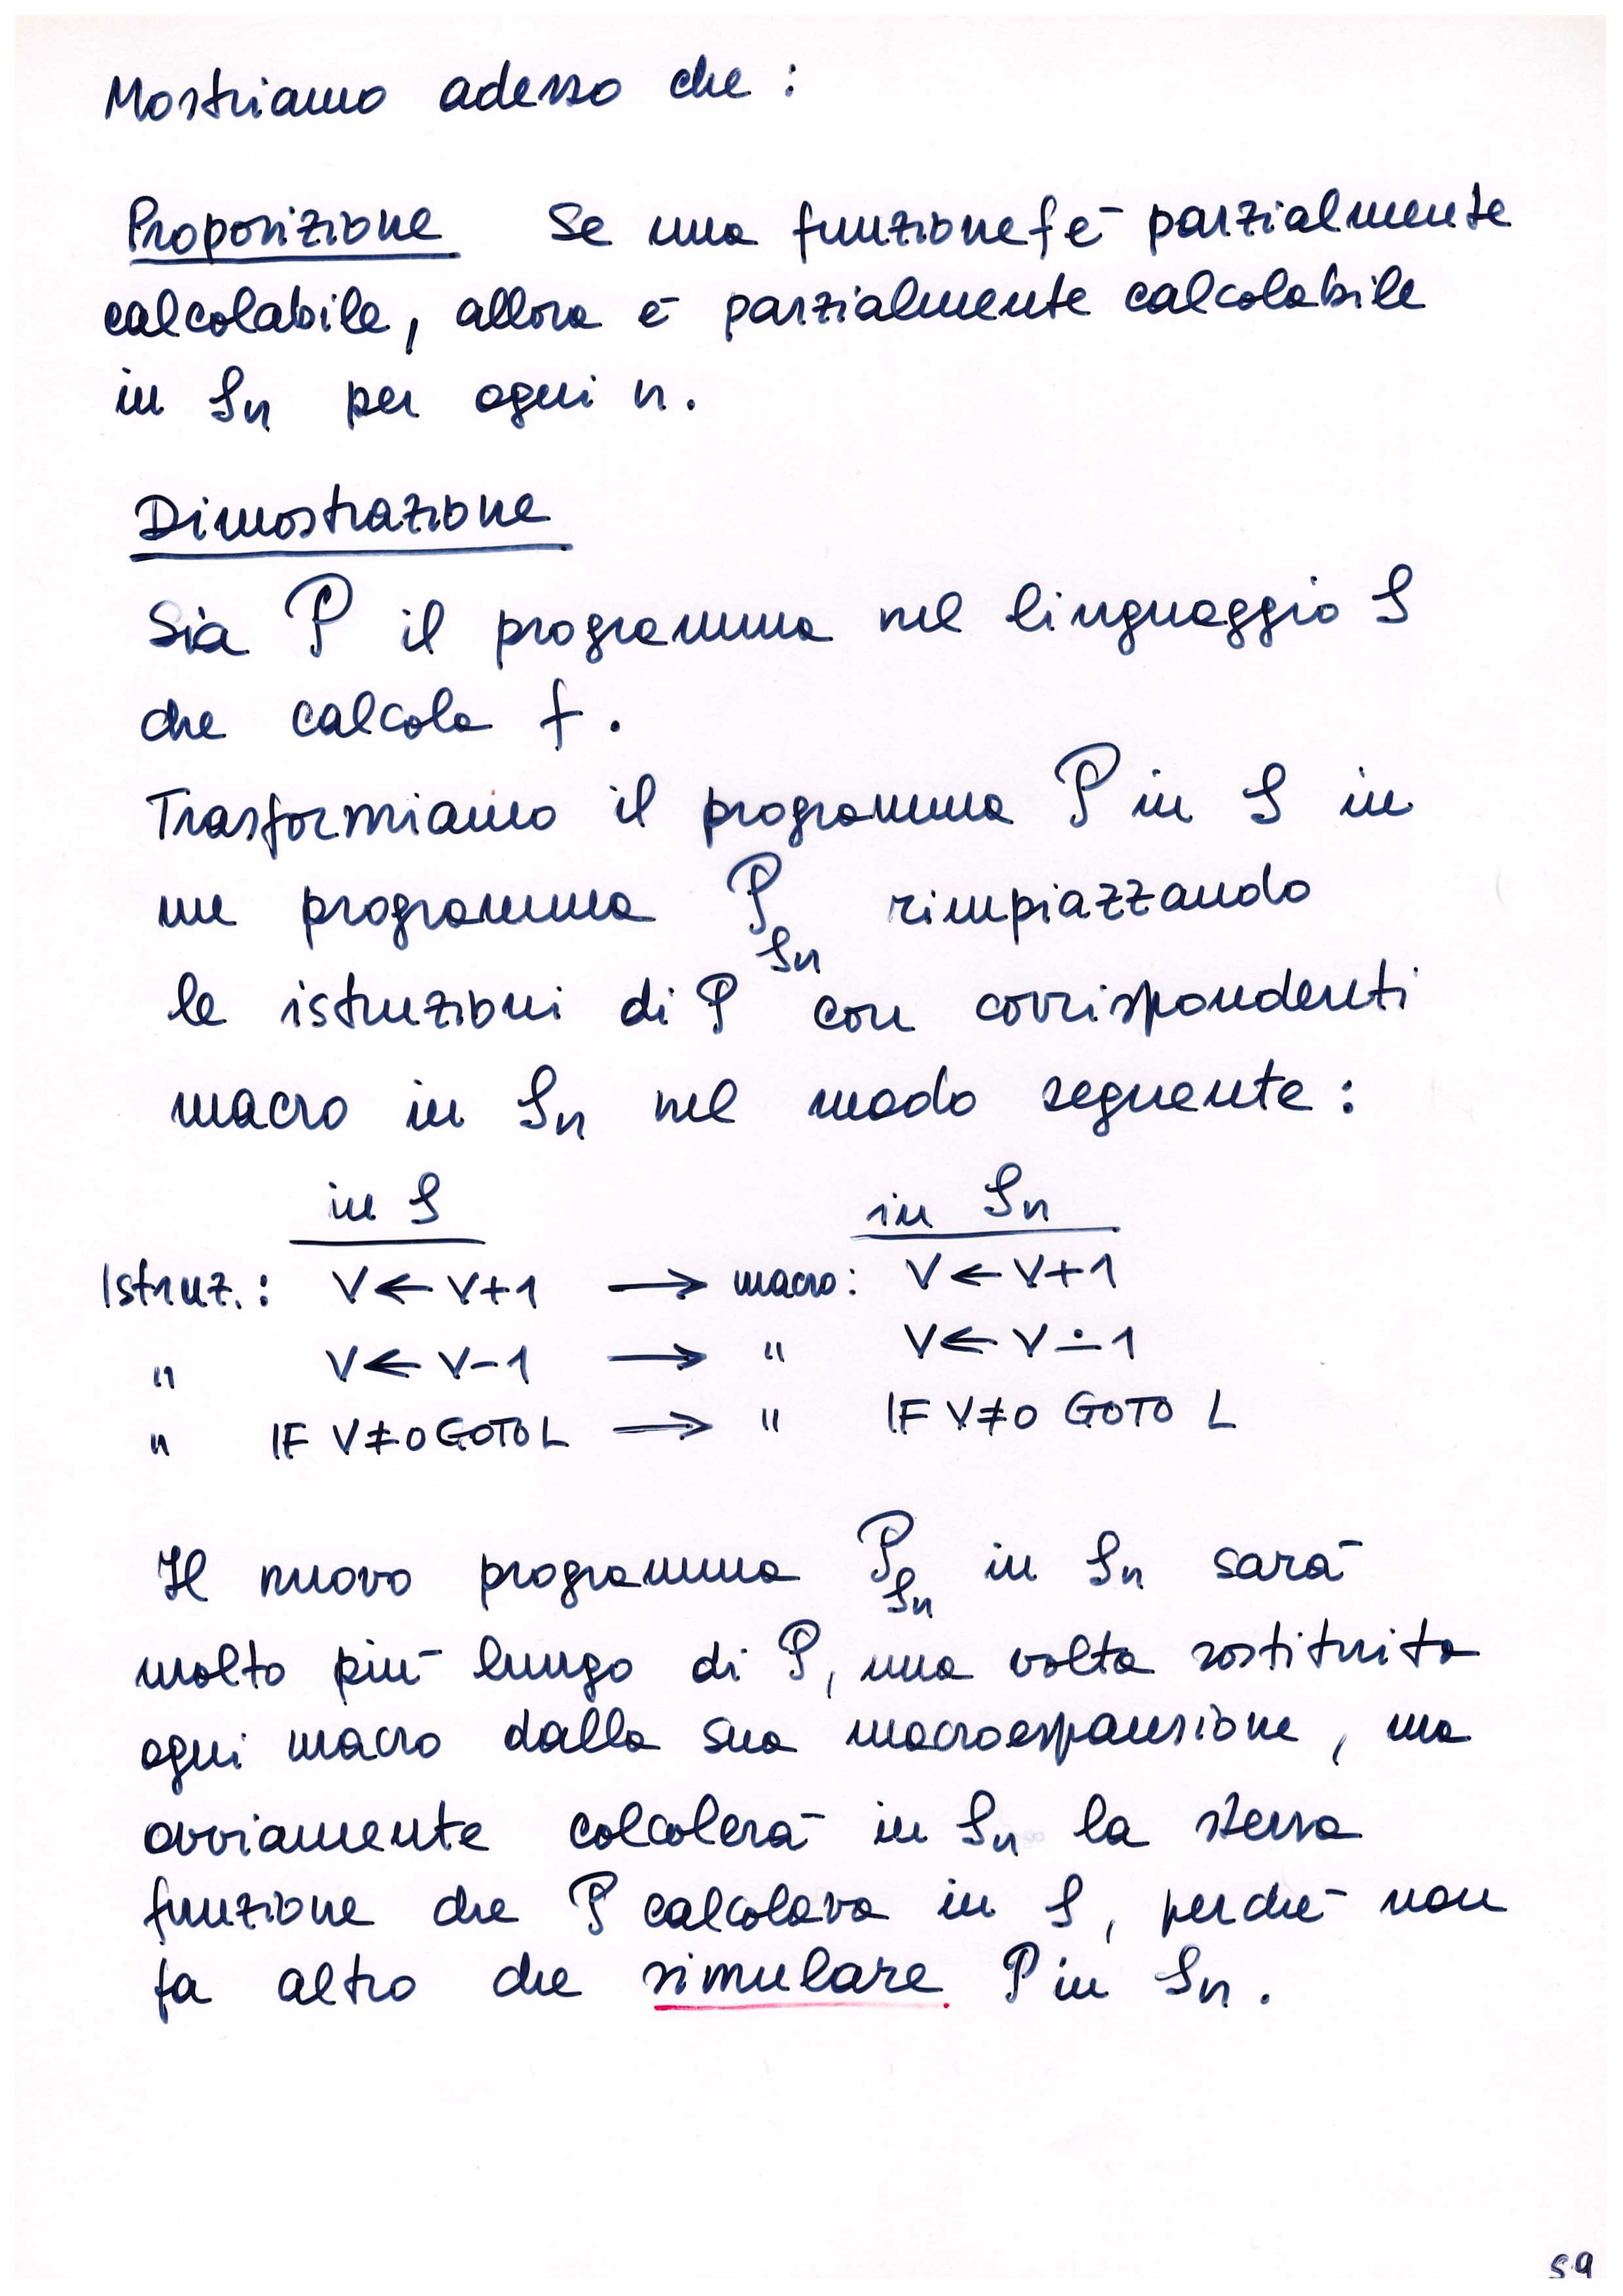 Mostriamo adesso che :
Proposizione Se una funzione f è parzialmente
calcolabile, allora è parzialmente calcolabile
in 𝒮n per ogni n.
Dimostrazione
Sia 𝒫 il programma nel linguaggio 𝒮
che calcola f.
Trasformiamo il programma 𝒫 in 𝒮 in
un programma 𝒫𝒮n rimpiazzando
le istruzioni di 𝒫 con corrispondenti
macro in 𝒮n nel modo seguente :
in 𝒮 in 𝒮n
Istruz. : V ← V+1 → macro : V ← V+1
" V ← V-1 → " V ← V∸1
" IF V≠0 GOTO L → " IF V≠0 GOTO L
Il nuovo programma 𝒫𝒮n in 𝒮n sarà
molto più lungo di 𝒫, una volta sostituita
ogni macro dalla sua macroespansione, ma
ovviamente calcolerà in 𝒮n la stessa
funzione che 𝒫 calcolava in 𝒮, perché non
fa altro che simulare 𝒫 in 𝒮n.
59